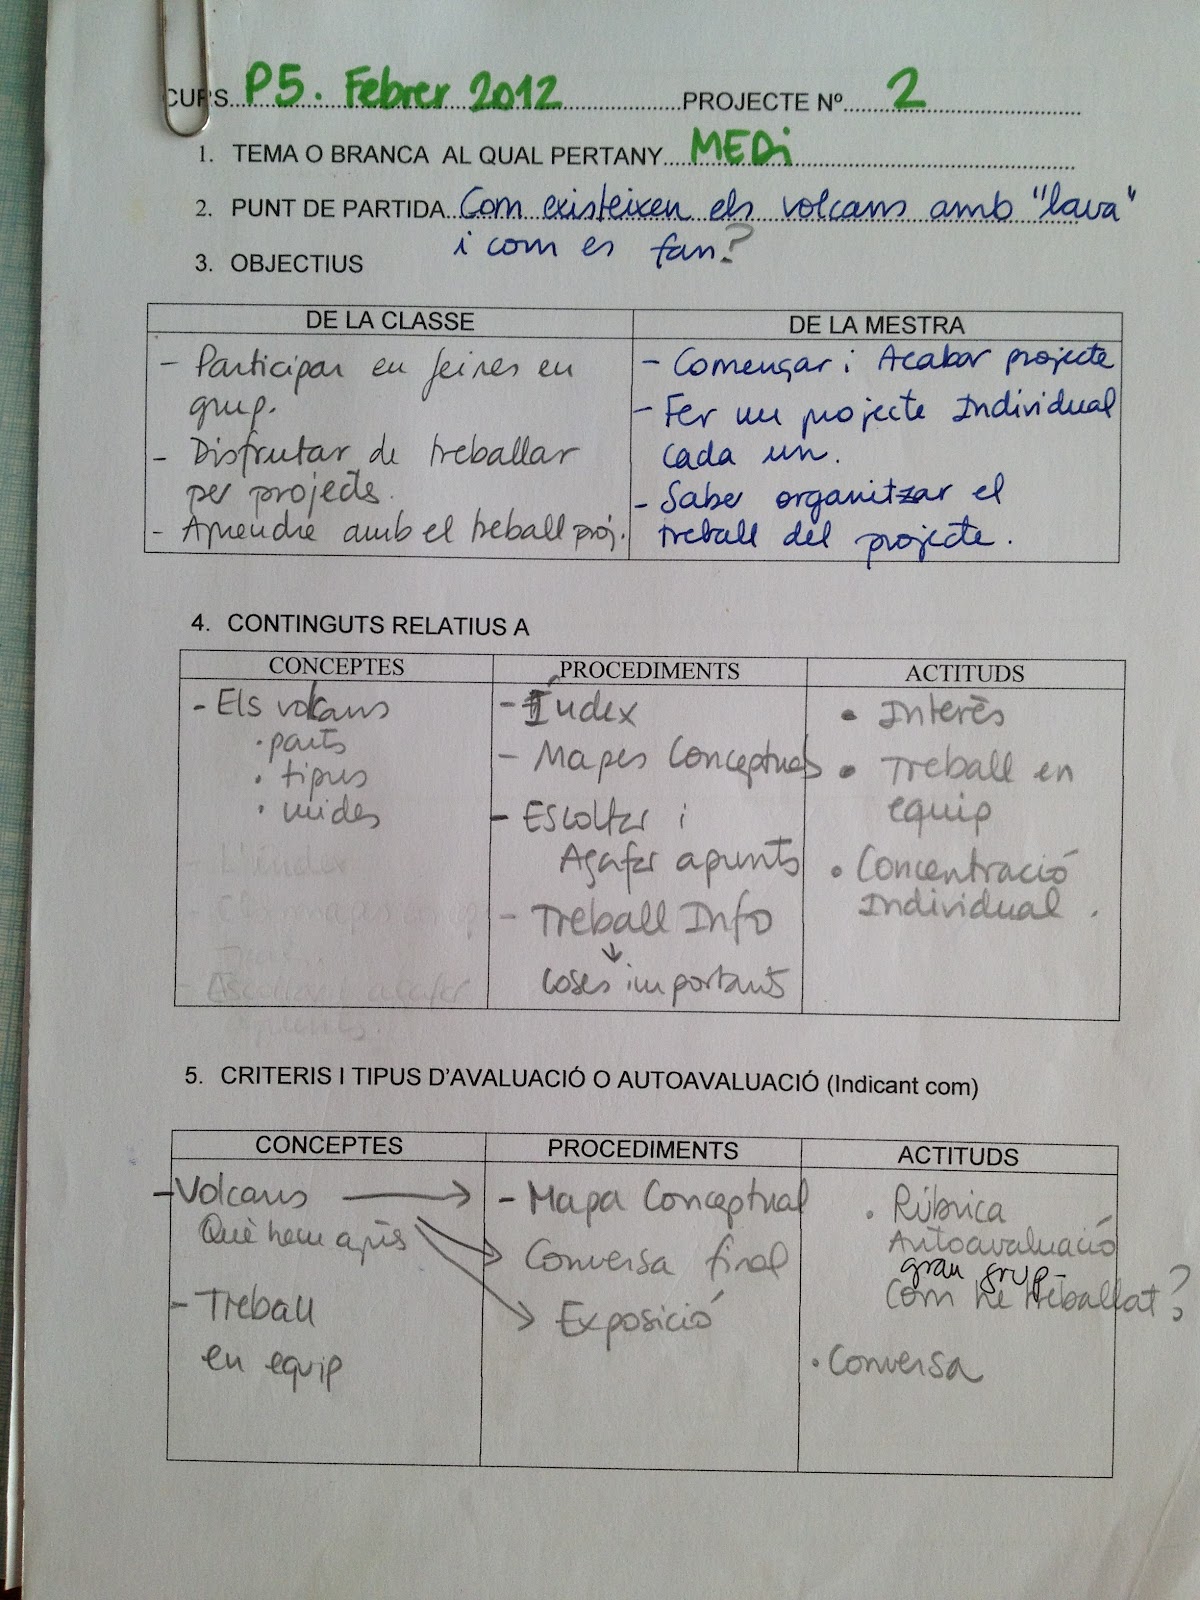 CURS P5. Febrer 2012 PROJECTE Nº 2
1. TEMA O BRANCA AL QUAL PERTANY MEDi
2. PUNT DE PARTIDA Com existeixen els volcans amb "lava"
i com es fan?
3. OBJECTIUS
DE LA CLASSE
- Participar en feines en
grup.
- Disfrutar de treballar
per projects.
- Aprendre amb el treball proj.
DE LA MESTRA
- Començar i Acabar projecte
- Fer un projecte Individual
cada un.
- Saber organitzar el
treball del projecte.
4. CONTINGUTS RELATIUS A
CONCEPTES
- Els volcans
• parts
• tipus
• mides
- L'índex
PROCEDIMENTS
- Índex
- Mapes Conceptuals
- Escoltar i
Agafar apunts
- Treball Info
↓
coses importants
ACTITUDS
• Interès
• Treball en
equip
• Concentració
Individual.
5. CRITERIS I TIPUS D'AVALUACIÓ O AUTOAVALUACIÓ (Indicant com)
CONCEPTES
- Volcans
Què hem après
- Treball
en equip
PROCEDIMENTS
- Mapa Conceptual
Conversa final
Exposició
ACTITUDS
• Rúbrica
Autoavaluació
gran grup-
Com he treballat?
• Conversa